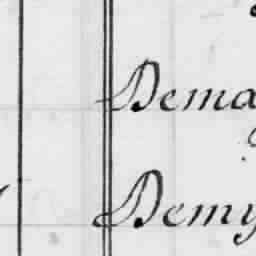 Dema
Demy